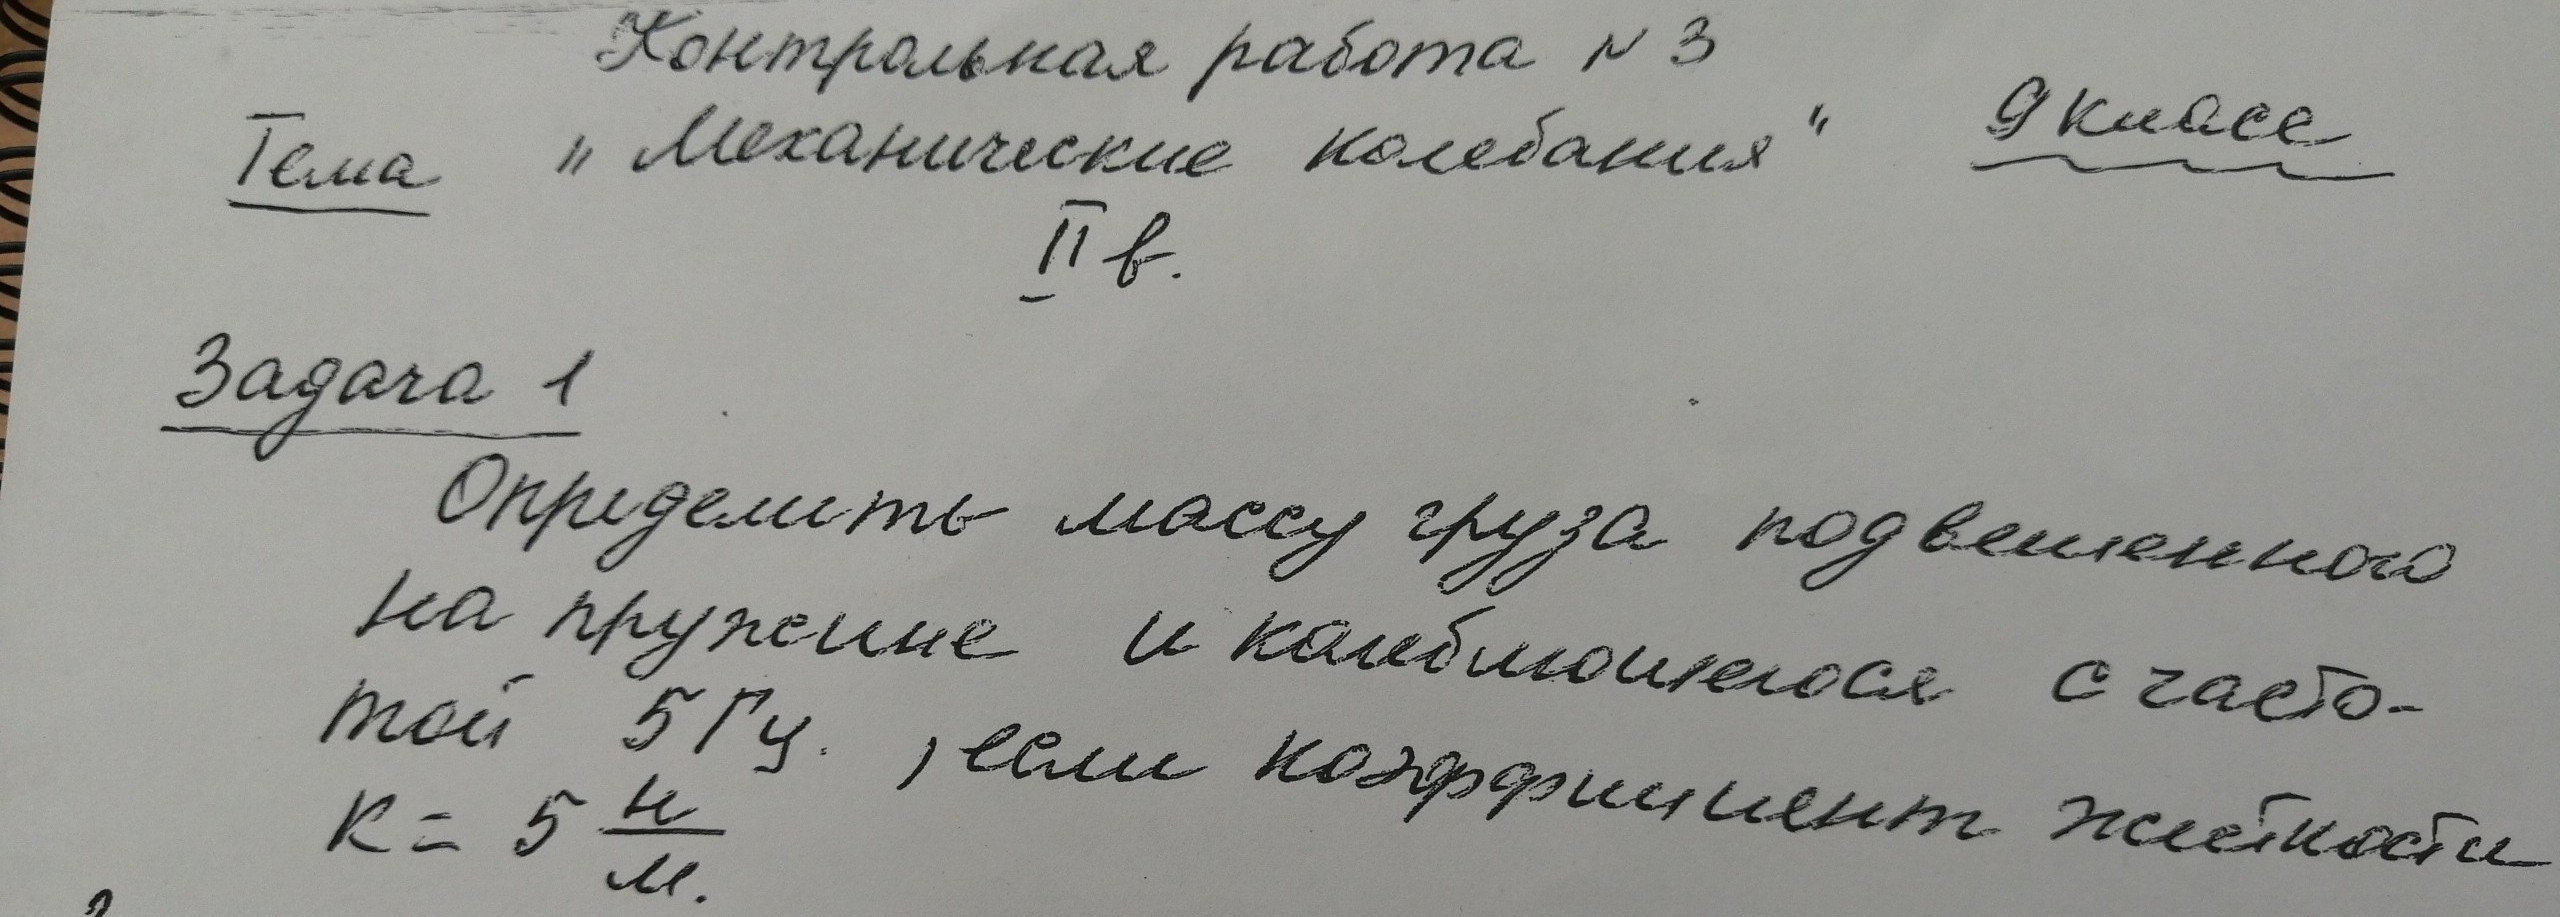 Контрольная работа N 3
Тема „Механические колебания" 9 класс
II в.
Задача 1
Определить массу груза подвешенного
на пружине и колеблющегося с часто-
той 5 Гц. , если коэффициент жесткости
К = 5 н/м.